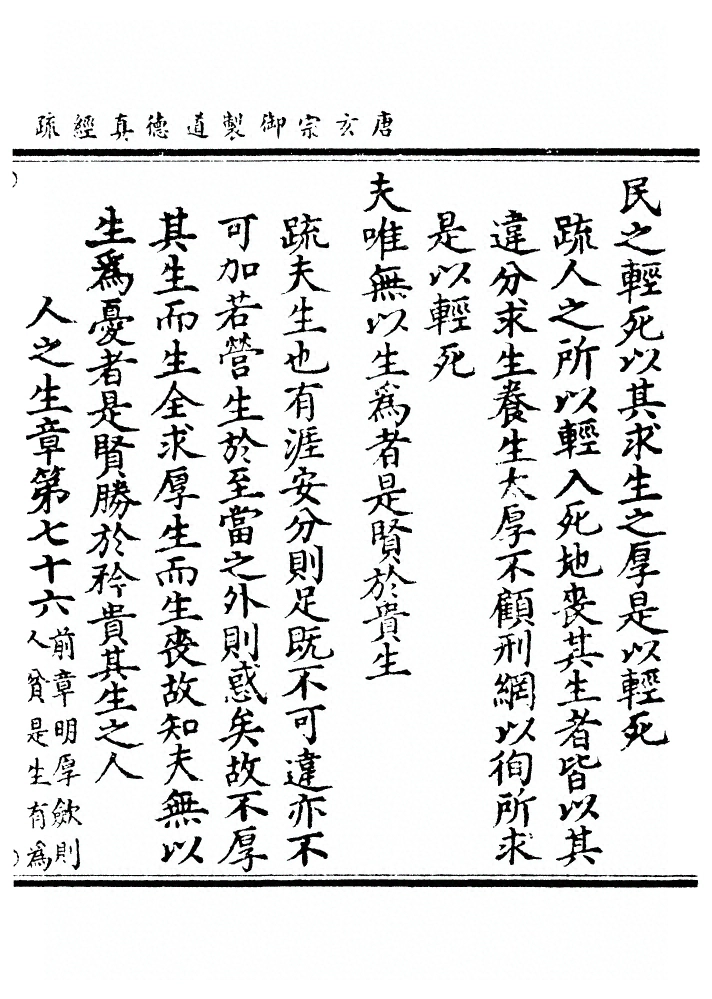 唐玄宗御製道德真經疏
民之輕死以其求生之厚是以輕死
疏人之所以輕入死地喪其生者皆以其
違分求生養生太厚不顧刑網以徇所求
是以輕死
夫唯無以生爲者是賢於貴生
疏夫生也有涯安分則足既不可違亦不
可加若營生於至當之外則惑矣故不厚
其生而生全求厚生而生喪故知夫無以
生爲憂者是賢勝於矜貴其生之人
人之生章第七十六
前章明厚歛則
人貧是生有爲